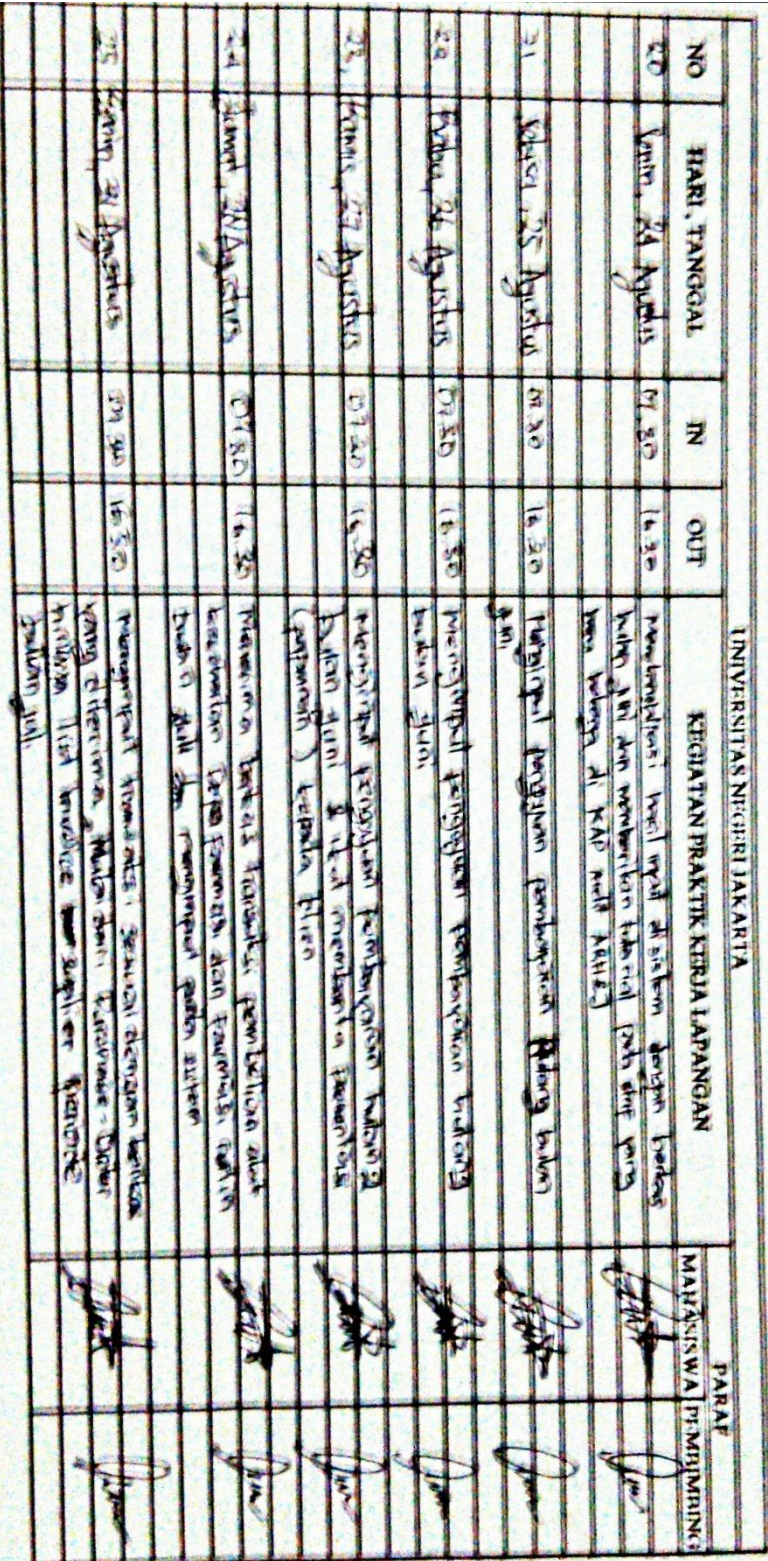 UNIVERSITAS NEGERI JAKARTA
NO HARI, TANGGAL IN OUT KEGIATAN PRAKTIK KERJA LAPANGAN PARAF
MAHASISWA PEMBIMBING
20 Senin, 24 Agustus 07.30 16.30 hasil input di sistem dengan berkas
bulan Juni dan memberikan tutorial pada yang
di KAP
21 Selasa, 25 Agustus 07.30 16.30 Menginput pengajuan pembayaran Hutang bulan
Juni
22 Rabu, 26 Agustus 07.30 16.30 Menginput pengajuan pembayaran hutang
bulan Juni
23 Kamis, 27 Agustus 07.30 16.30 Menginput pengajuan pembayaran hutang
bulan Juni & membantu
kepada klien
24 Jumat, 28 Agustus 07.30 16.30 Menerima berkas transaksi pembelian alat
kesehatan Depo Farmasi dan Farmasi rutin
bulan Juli dan menginput pada sistem
25 Senin, 31 Agustus 07.30 16.30 Menginput transaksi sesuai dengan berkas
yang diterima, Mulai dari Purchase Order
list invoice supplier periode
bulan Juli.